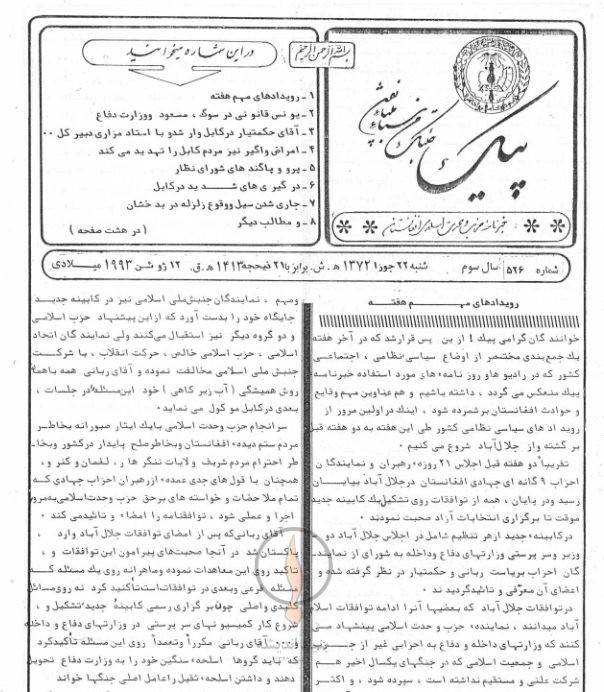 در این شماره میخوانید
بسم الله الرحمن الرحیم
۱ - رویدادهای مهم هفته
۲ - یونس قانونی در سوگ ، مسعود ووزارت دفاع
۳ - آقای حکمتیار درکابل وارد شدو با استاد مزاری دبیر کل ۰۰
۴ - امراض واگیر نیز مردم کابل را تهدید می کند
۵ - پرو و پاگند های شورای نظار
۶ - درگیری های شدید درکابل
۷ - جاری شدن سیل ووقوع زلزله در بدخشان
۸ - و مطالب دیگر
( در هشت صفحه )
پیک
خبرنامه حزب وحدت اسلامی افغانستان
شماره ۵۲۶ سال سوم شنبه ۲۲ جوزا ۱۳۷۲ ه.ش. برابر با ۲۱ ذیحجه ۱۴۱۳ ه.ق. ۱۲ ژوئن ۱۹۹۳ میلادی
رویدادهای مهم هفته
خوانند گان گرامی پیك ! از ین پس قرارشد که در آخر هفته
یك جمع‌بندی مختصر از اوضاع سیاسی نظامی ، اجتماعی
کشور که در رادیو هاو روز نامه های مورد استفاده خبرنامه
پیك منعکس می گردد ، داشته باشیم و هم عناوین مهم وقایع
و حوادث افغانستان برشمرده شود ، اینك در اولین مرور از
رویداد های سیاسی نظامی کشور طی این هفته به دو هفته قبل
بر گشته واز جلال آباد شروع می کنیم ۰
تقریباً دو هفته قبل اجلاس ۲۱ روزه رهبران و نمایندگا ن
احزاب ۹ گانه ای جهادی افغانستان درجلال آباد بپایان
رسید ودر پایان ، همه از توافقات روی تشکیل یك کابینه جدید
موقت تا برگزاری انتخابات آزاد صحبت نمودند ۰
درکابینه جدید ازهر تنظیم شامل در اجلاس جلال آباد دو
وزیر وسر پرستی وزارتهای دفاع وداخله به شورای از نمایند
گان احزاب بریاست ربانی و حکمتیار در نظر گرفته شده و
اعضای آن معرفی و تائیدگردید ند ۰
درتوافقات جلال آباد که بعضیها آنرا ادامه توافقات اسلام
آباد میدانند ، نماینده حزب و حدت اسلامی پیشنهاد می
کنند که وزارتهای داخله و دفاع به احزابی غیر از حزب
اسلامی و جمعیت اسلامی که در جنگهای یکسال اخیر هم
شرکت علنی و مستقیم نداشته است ، سپرده شود ، و اکثر
ومهم ، نمایندگان جنبش ملی اسلامی نیز در کابینه جدید
جایگاه خود را بدست آورد که از این پیشنهاد حزب اسلامی
و دو گروه دیگر نیز استقبال می‌کنند ولی نمایند گان اتحاد
اسلامی ، حزب اسلامی خالص ، حرکت انقلاب ، با شرکت
جنبش ملی اسلامی مخالفت نموده و آقای ربانی همه باهما
روش همیشگی ( آب زیر کاهی ) خود این مسئله در جلسات ،
بعدی درکابل مو کول می نماید ۰
سرانجام حزب وحدت اسلامی بایك ایثار صبورانه بخاطر
مردم ستم دیده افغانستان وبخاطر صلح پایدار درکشور وبخا
طر احترام مردم شریف ولایات ننگر ها ر ، لغمان و کنر و ،
همچنان با قول های جدی عمده از رهبران احزاب جهادی که
تمام ملاحضات و خواسته های برحق حزب وحدت اسلامی به مرور
اجرا و عملی شود ، توافقنامه را امضاء و تائید می کند ۰
آقای ربانی که پس از امضای توافقات جلال آباد وارد ،
پاکستان شد در آنجا صحبت‌های پیرامون این توافقات و ،
تأکید روی این معاهدات نموده وماهرانه روی یك مسئله که
مسئله فرعی وبعدی در توافقات است تأکید کرد نه روی مسائل
کلیدی واصلی چون بر گزاری رسمی کابینهٔ جدید تشکیل و ،
شروع کار کمیسیو نهای سر پرستی در وزارتهای دفاع و داخله
آقای ربانی مکرراً وتعمداً روی این مسئله تأکید کرد
که باید گروها اسلحه سنگین خود را به وزارت دفاع تحویل
دهند و داشتن اسلحه ثقیل را عامل اصلی جنگها خواند